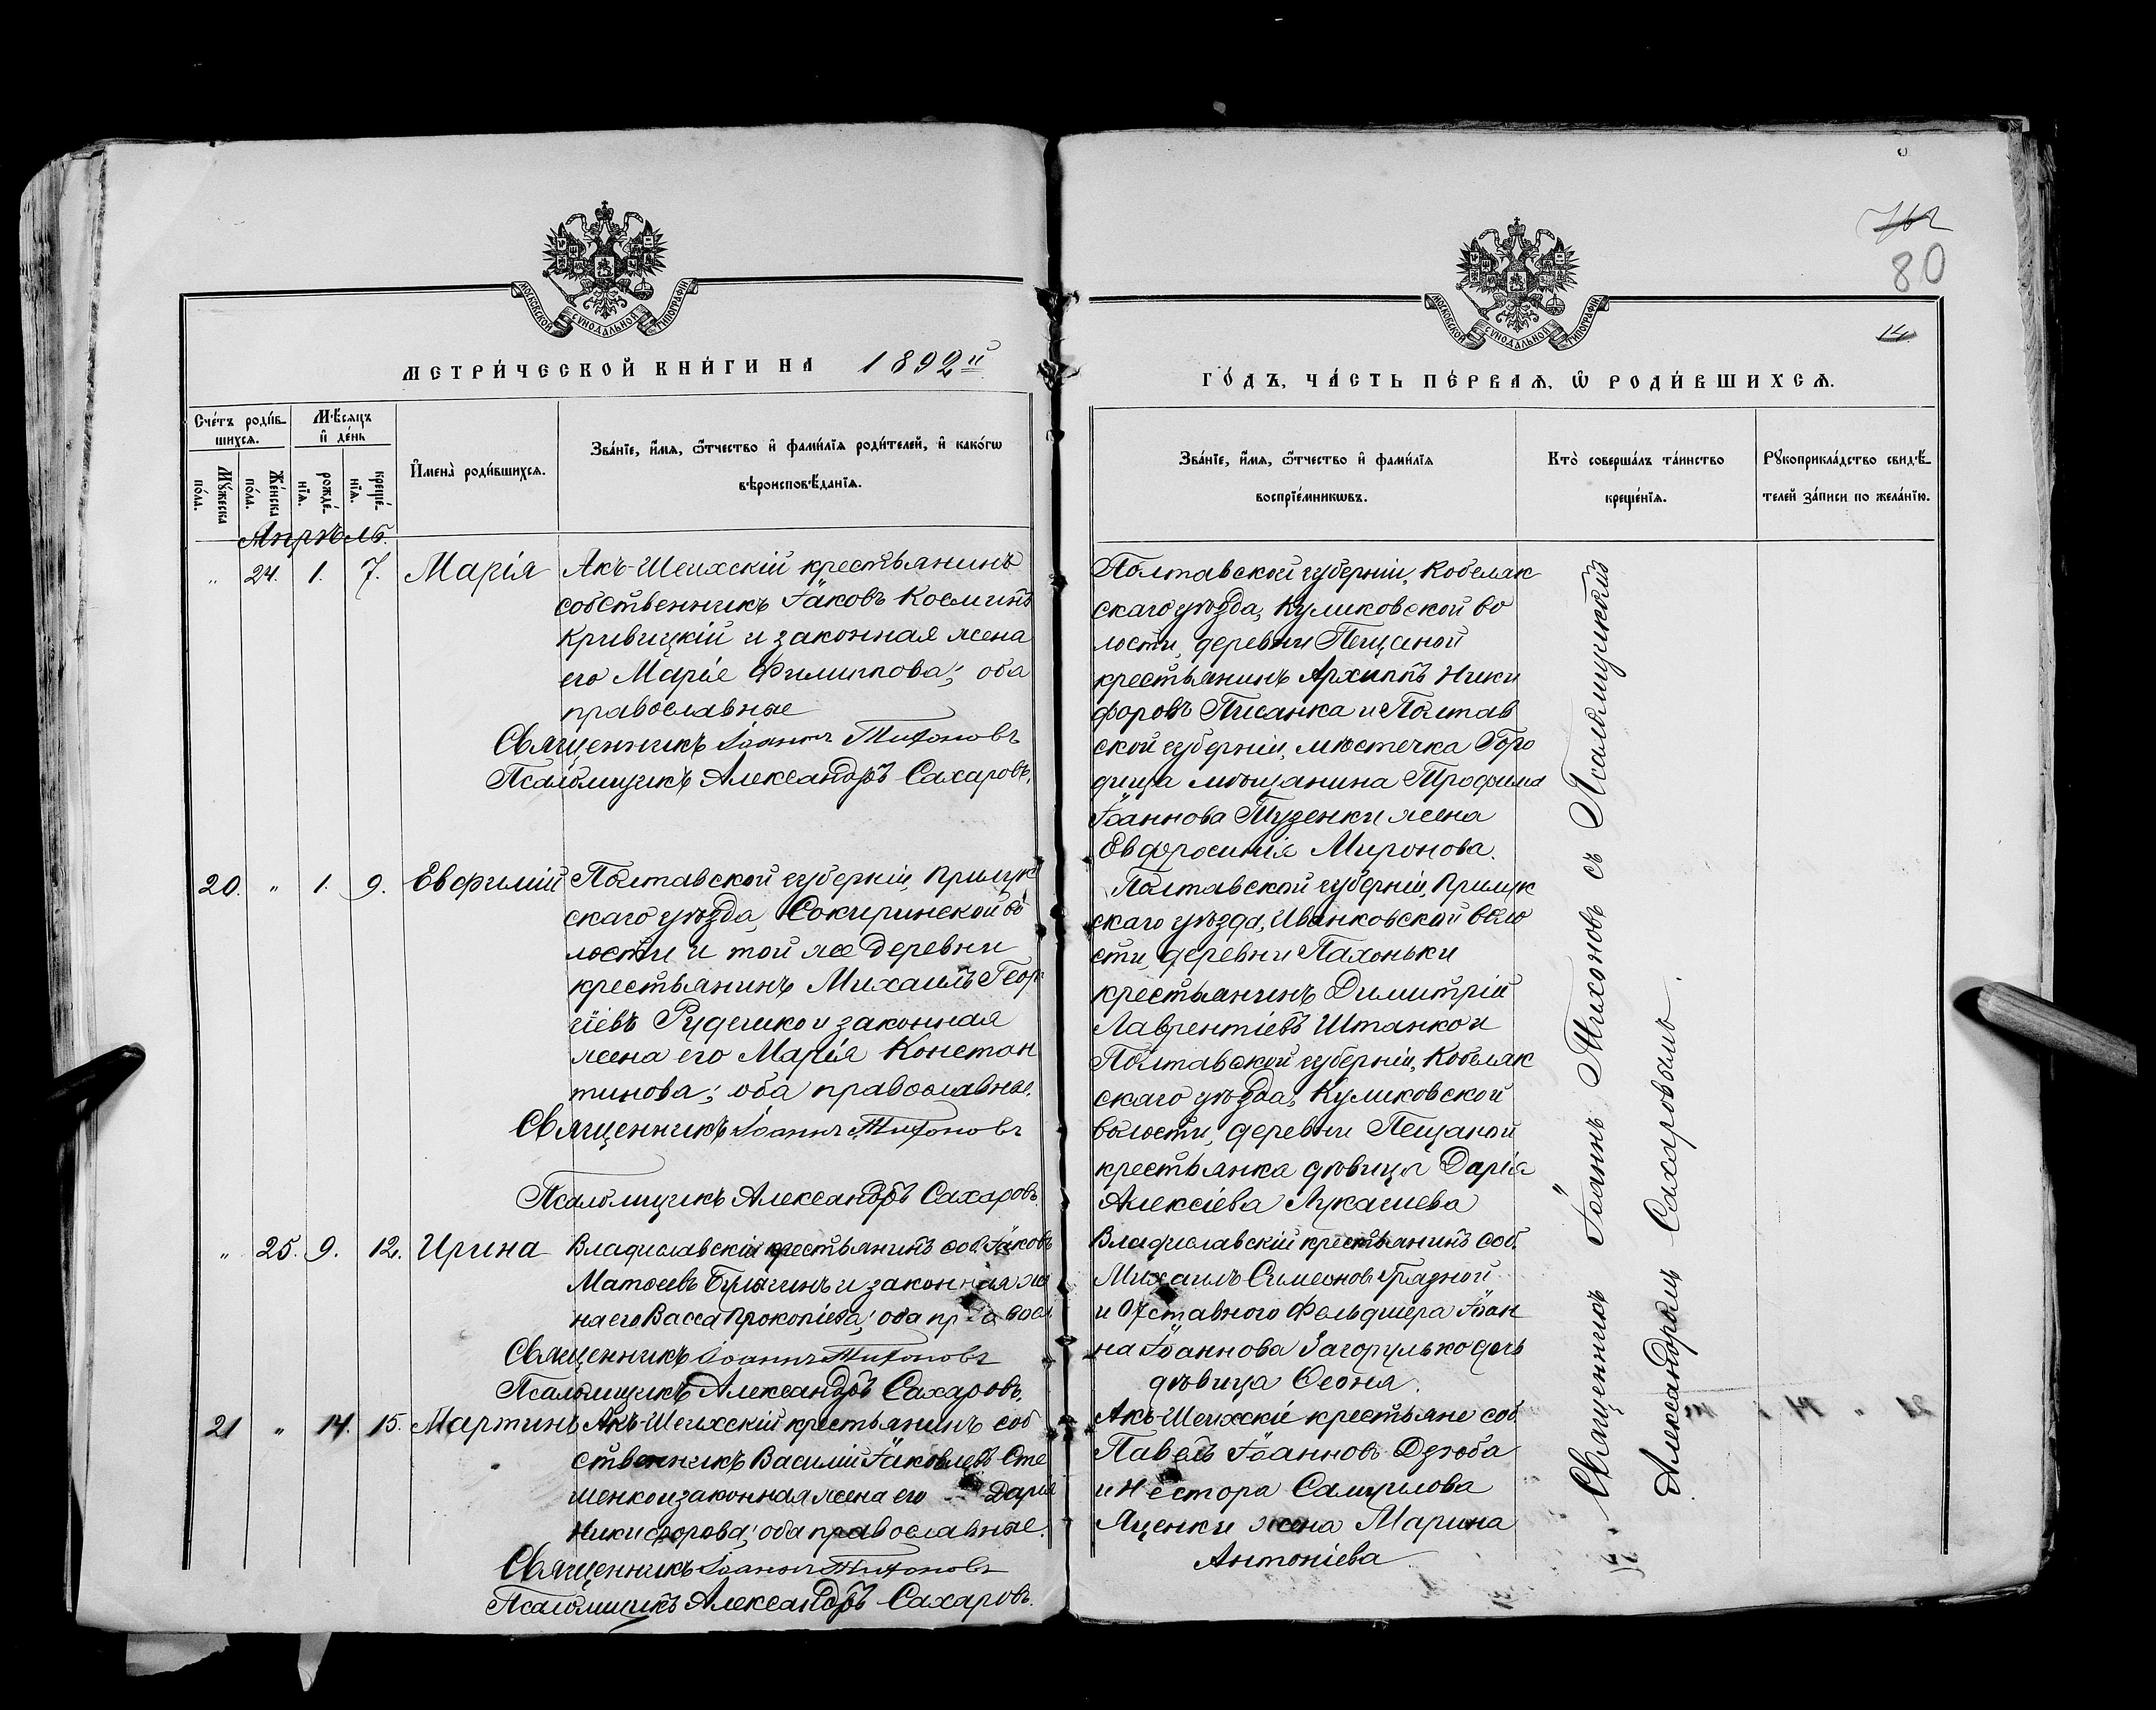 МОСКОВСКОЙ СѴНОДАЛЬНОЙ ТИПОГРАФІИ
МЕТРИ́ЧЕСКОЙ КНИ́ГИ НА 1892й
Сче́тъ роди́в-
шихсѧ.
Мѣ́сѧцъ
и҆ де́нь
Мꙋ́жеска
по́ла.
Же́нска
по́ла.
рожде́-
нїѧ.
креще́-
нїѧ.
И҆мена̀ роди́вшихсѧ.
Зва́нїе, и҆́мѧ, ѻ҆́тчество и҆ фами́лїѧ роди́телей, и҆ како́гѡ
вѣроисповѣ́данїѧ.
Апрѣль.
„ 24. 1. 7. Марія Акъ-Шеихскій крестьянинъ
собственникъ Іаковъ Косминъ
Кривицкій и законная жена
его Марія Филиппова; оба
православные
Священникъ Іоаннъ Тихоновъ
Псаломщикъ Александръ Сахаровъ.
20. „ 1. 9. Евфимій Полтавской губерніи, Прилук
скаго уѣзда, Сокиринской во
лости и той же деревни
крестьянинъ Михаилъ Геор
гіевъ Рудешко и законная
жена его Марія Констан
тинова; оба православные.
Священникъ Іоаннъ Тихоновъ
Псаломщикъ Александръ Сахаровъ
„ 25. 9. 12. Ирина Владиславскій крестьянинъ соб. Іаковъ
Матѳеевъ и законная же
на его Васса Прокопіева; оба пр
Священникъ Іоаннъ Тихоновъ
Псаломщикъ Александръ Сахаровъ.
21 „ 14. 15. Мартинъ Акъ-Шеихскій крестьянинъ соб
ственникъ Василій Іаковлевъ Сте
шенко и законная жена его Дарія
Никифорова; оба православные.
Священникъ Іоаннъ Тихоновъ
Псаломщикъ Александръ Сахаровъ.
80
14
МОСКОВСКОЙ СѴНОДАЛЬНОЙ ТИПОГРАФІИ
ГО́ДЪ, ЧА́СТЬ ПЕ́РВАѦ, Ѡ҆ РОДИ́ВШИХСѦ.
Зва́нїе, и҆́мѧ, ѻ҆́тчество и҆ фами́лїѧ
воспрїе́мникѡвъ.
Кто̀ соверша́лъ та́инство
креще́нїѧ.
Рꙋкоприкла́дство свидѣ́-
телей за́писи по жела́нїю.
Полтавской губерніи, Кобеляк
скаго уѣзда, Куликовской во
лости, деревни Пещаной
крестьянинъ Архиппъ Ники
форовъ Писанка и Полтав
ской губерніи, мѣстечка Горо
дища мѣщанина Трофима
Іоаннова Тузенки жена
Евфросинія Миронова.
Полтавской губерніи, Прилук
скаго уѣзда, Иванковской воло
сти, деревни Пахоньки
крестьянинъ Димитрій
Лаврентіевъ Штанко и
Полтавской губерніи, Кобеляк
скаго уѣзда, Куликовской
волости, деревни Пещаной
крестьянка дѣвица Дарія
Алексіева Лукашева
Владиславскій крестьянинъ соб.
Михаилъ Симеоновъ Грязной
и Отставного Фельдшера Іоан
на Іоаннова Загорулько дочь
дѣвица Ѳеоня.
Акъ-Шеихскіе крестьяне соб.
Павелъ Іоанновъ Дзюба
и Нестора Самуилова
Яценки жена Марина
Антоніева
Священникъ Іоаннъ Тихоновъ съ Псаломщикомъ
Александромъ Сахаровымъ.